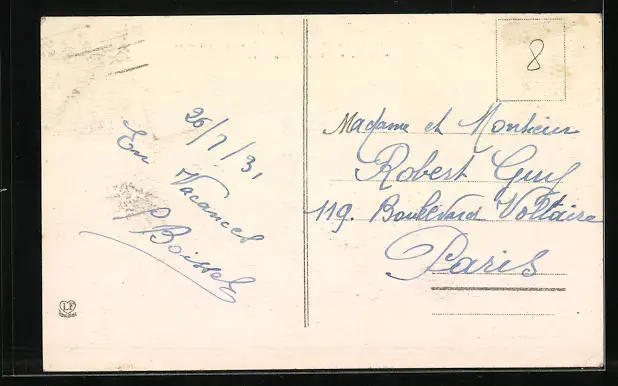 26/7/31
En Vacances
8
Madame et Monsieur
Robert Guy
119. Boulevard Voltaire
Paris